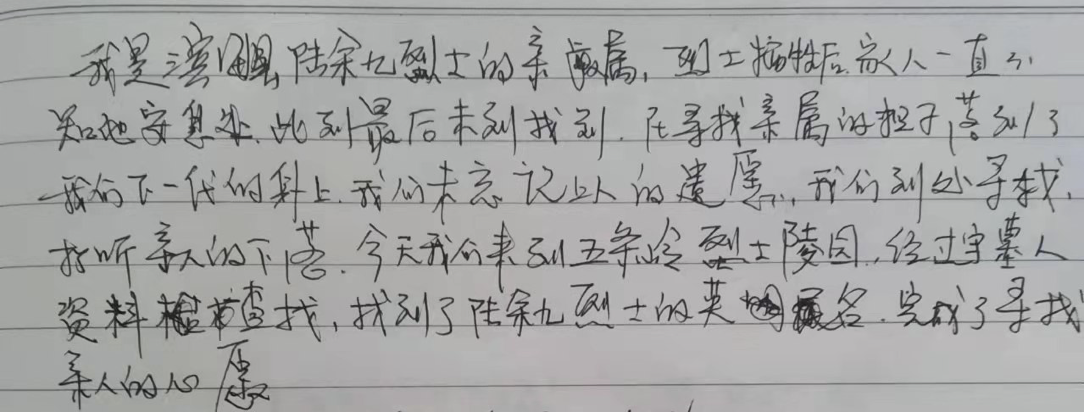 我是滨海县陆余九烈士的亲属，烈士牺牲后家人一直不
知他安息处，此到最后未到找到，在寻找亲属的担子落到了
我们下一代的身上，我们未忘记上人的遗愿，我们到处寻找，
打听亲人的下落，今天我们来到五条岭烈士陵园，经过守墓人
资料检查找，找到了陆余九烈士的英名，完成了寻找
亲人的心愿